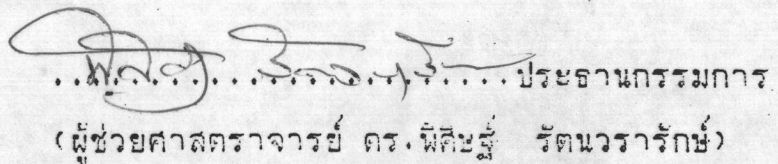 ........................................ประธานกรรมการ
(ผู้ช่วยศาสตราจารย์ ดร.พิศิษฐ์ รัตนวรารักษ์)